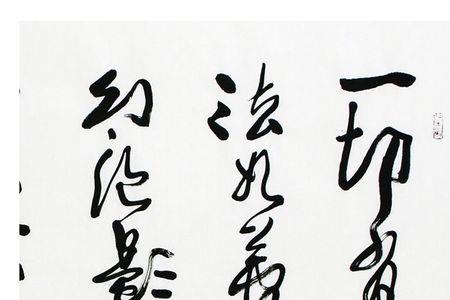 一切有
法如夢
幻泡影